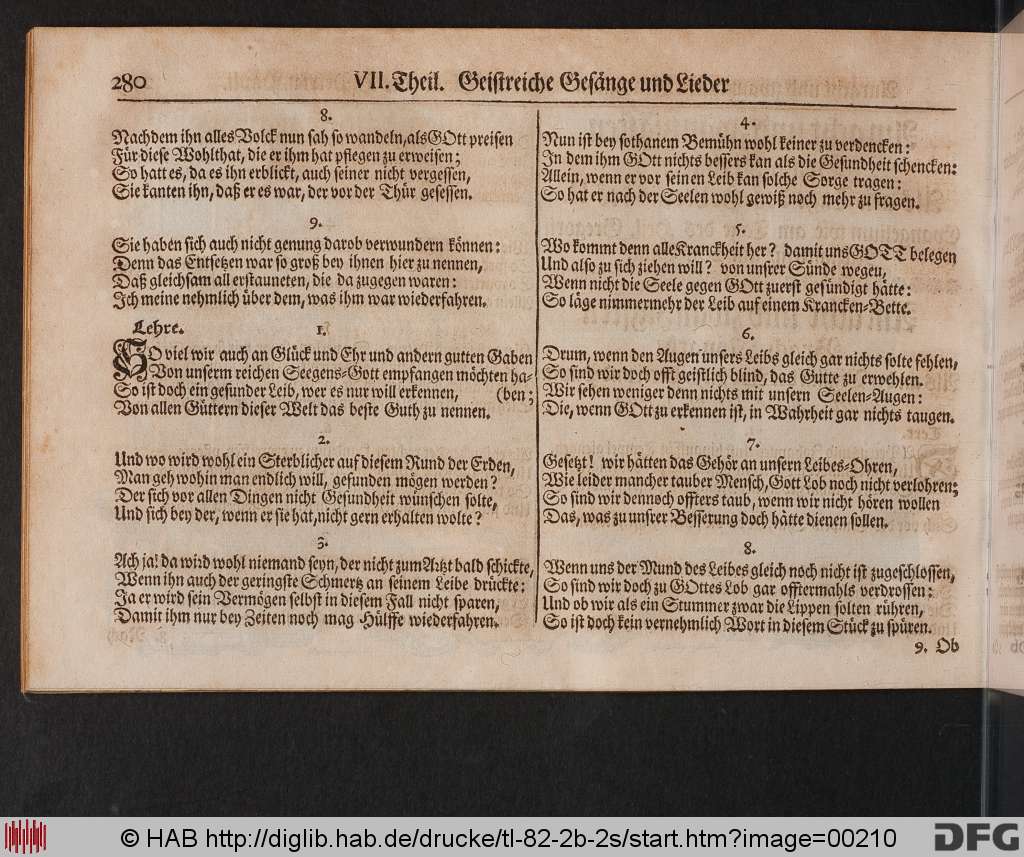 280 VII. Theil. Geistreiche Gesänge und Lieder
8.
Nachdem ihn alles Volck nun sah so wandeln, als GOtt preisen
Für diese Wohlthat, die er ihm hat pflegen zu erweisen;
So hatt es, da es ihn erblickt, auch seiner nicht vergessen,
Sie kanten ihn, daß er es war, der vor der Thür gesessen.
9.
Sie haben sich auch nicht genung darob verwundern können:
Denn das Entsetzen war so groß bey ihnen hier zu nennen,
Daß gleichsam all erstauneten, die da zugegen waren:
Ich meine nehmlich über dem, was ihm war wiederfahren.
Lehre. 1.
SO viel wir auch an Glück und Ehr und andern gutten Gaben
Von unserm reichen Seegens-Gott empfangen möchten ha-
So ist doch ein gesunder Leib, wer es nur will erkennen, (ben;
Von allen Güttern dieser Welt das beste Guth zu nennen.
2.
Und wo wird wohl ein Sterblicher auf diesem Rund der Erden,
Man geh wohin man endlich will, gefunden mögen werden?
Der sich vor allen Dingen nicht Gesundheit wünschen solte,
Und sich bey der, wenn er sie hat, nicht gern erhalten wolte?
3.
Ach ja! da wird wohl niemand seyn, der nicht zum Artzt bald schickte,
Wenn ihn auch der geringste Schmertz an seinem Leibe drückte:
Ja er wird sein Vermögen selbst in diesem Fall nicht sparen,
Damit ihm nur bey Zeiten noch mag Hülffe wiederfahren.
4.
Nun ist bey sothanem Bemühn wohl keiner zu verdencken:
In dem ihm GOtt nichts bessers kan als die Gesundheit schencken:
Allein, wenn er vor seinen Leib kan solche Sorge tragen:
So hat er nach der Seelen wohl gewiß noch mehr zu fragen.
5.
Wo kommt denn alle Kranckheit her? damit uns GOTT belegen
Und also zu sich ziehen will? von unsrer Sünde wegen,
Wenn nicht die Seele gegen GOtt zuerst gesündigt hätte:
So läge nimmermehr der Leib auf einem Krancken-Bette.
6.
Drum, wenn den Augen unsers Leibs gleich gar nichts solte fehlen,
So sind wir doch offt geistlich blind, das Gutte zu erwehlen.
Wir sehen weniger denn nichts mit unsern Seelen-Augen:
Die, wenn GOtt zu erkennen ist, in Wahrheit gar nichts taugen.
7.
Gesetzt! wir hätten das Gehör an unsern Leibes-Ohren,
Wie leider mancher tauber Mensch, Gott Lob noch nicht verlohren;
So sind wir dennoch offters taub, wenn wir nicht hören wollen
Das, was zu unsrer Besserung doch hätte dienen sollen.
8.
Wenn uns der Mund des Leibes gleich noch nicht ist zugeschlossen,
So sind wir doch zu GOttes Lob gar offtermahls verdrossen:
Und ob wir als ein Stummer zwar die Lippen solten rühren,
So ist doch kein vernehmlich Wort in diesem Stück zu spüren.
9. Ob
© HAB http://diglib.hab.de/drucke/tl-82-2b-2s/start.htm?image=00210
DFG